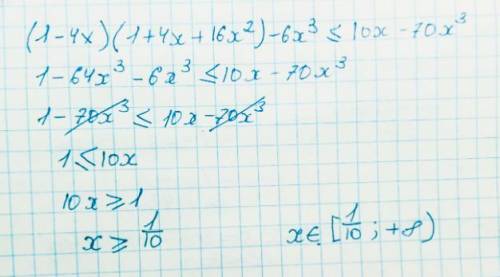 (1-4x)(1+4x+16x²)-6x³ ≤ 10x-70x³
1-64x³-6x³ ≤ 10x-70x³
1-70x³ ≤ 10x-70x³
1 ≤ 10x
10x ≥ 1
x ≥ 1/10 x ∈ [1/10; +∞)